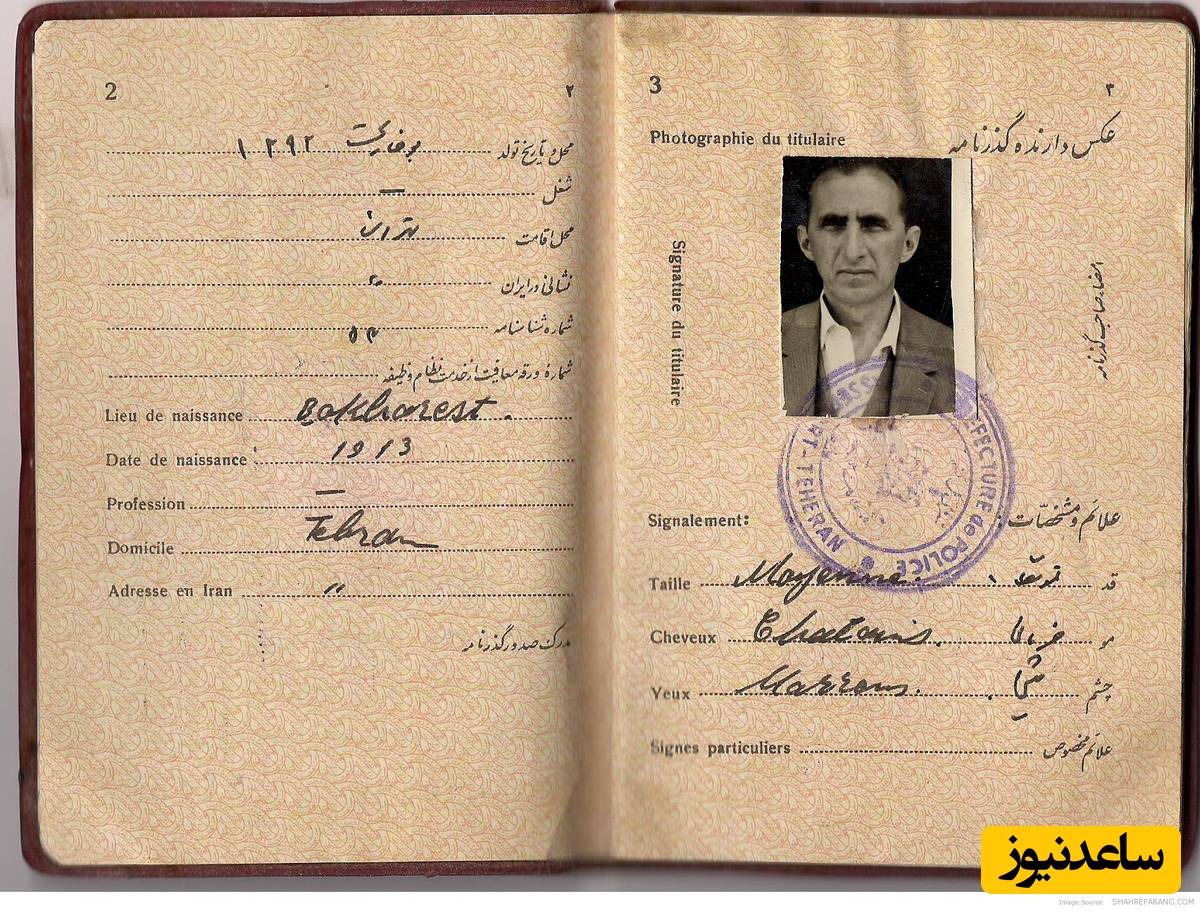 2
۲
محل و تاریخ تولد بوخارست ۱۲۹۲
شغل —
محل اقامت تهران
نشانی در ایران "
شماره شناسنامه
شماره ورقه معافیت از خدمت نظام وظیفه
Lieu de naissance Bokharest.
Date de naissance: 1913
Profession —
Domicile Tehran
Adresse en Iran "
مدرک صدور گذرنامه
3
۳
Photographie du titulaire
عکس دارنده گذرنامه
Signature du titulaire
امضاء صاحب گذرنامه
PREFECTURE de POLICE
TEHERAN
Signalement:
علائم و مشخصات
Taille Moyenne.
قد
Cheveux Chatains.
مو خرمائی
Yeux Marrons.
چشم میشی
Signes particuliers
علائم مخصوص
ساعدنیوز
Image Source: SHAHREFARANG.COM